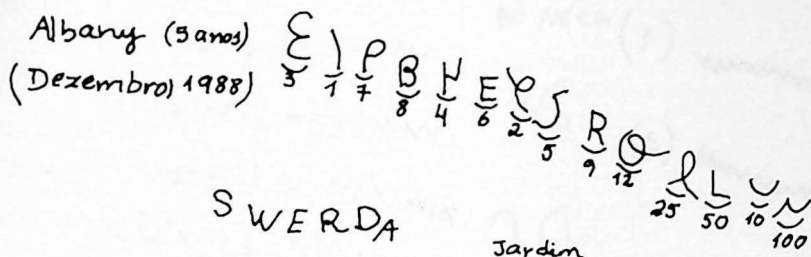 Albany (5 anos)
(Dezembro) 1988)
E I P B H E L S R O L L U N
3 1 7 8 4 6 2 5 9 12 25 50 10 100
S W E R D A
Jardim